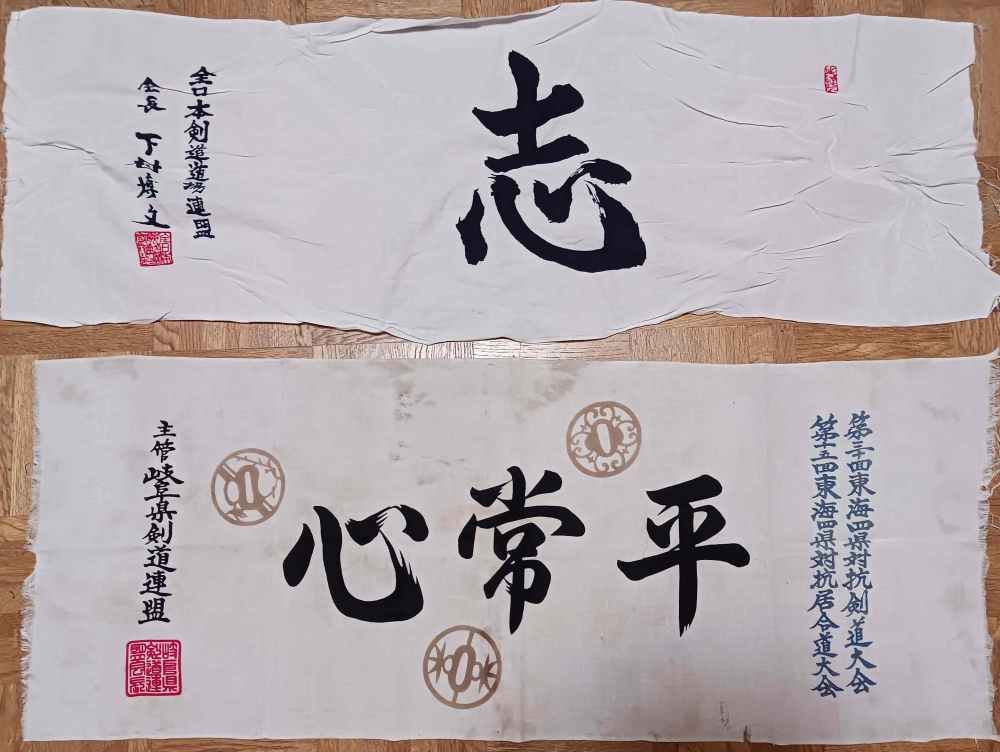 志
全日本剣道道場連盟
会長 下村博文
第三十回東海四県対抗剣道大会
第十五回東海四県対抗居合道大会
平常心
主管 岐阜県剣道連盟
岐阜県
剣道連
盟会長